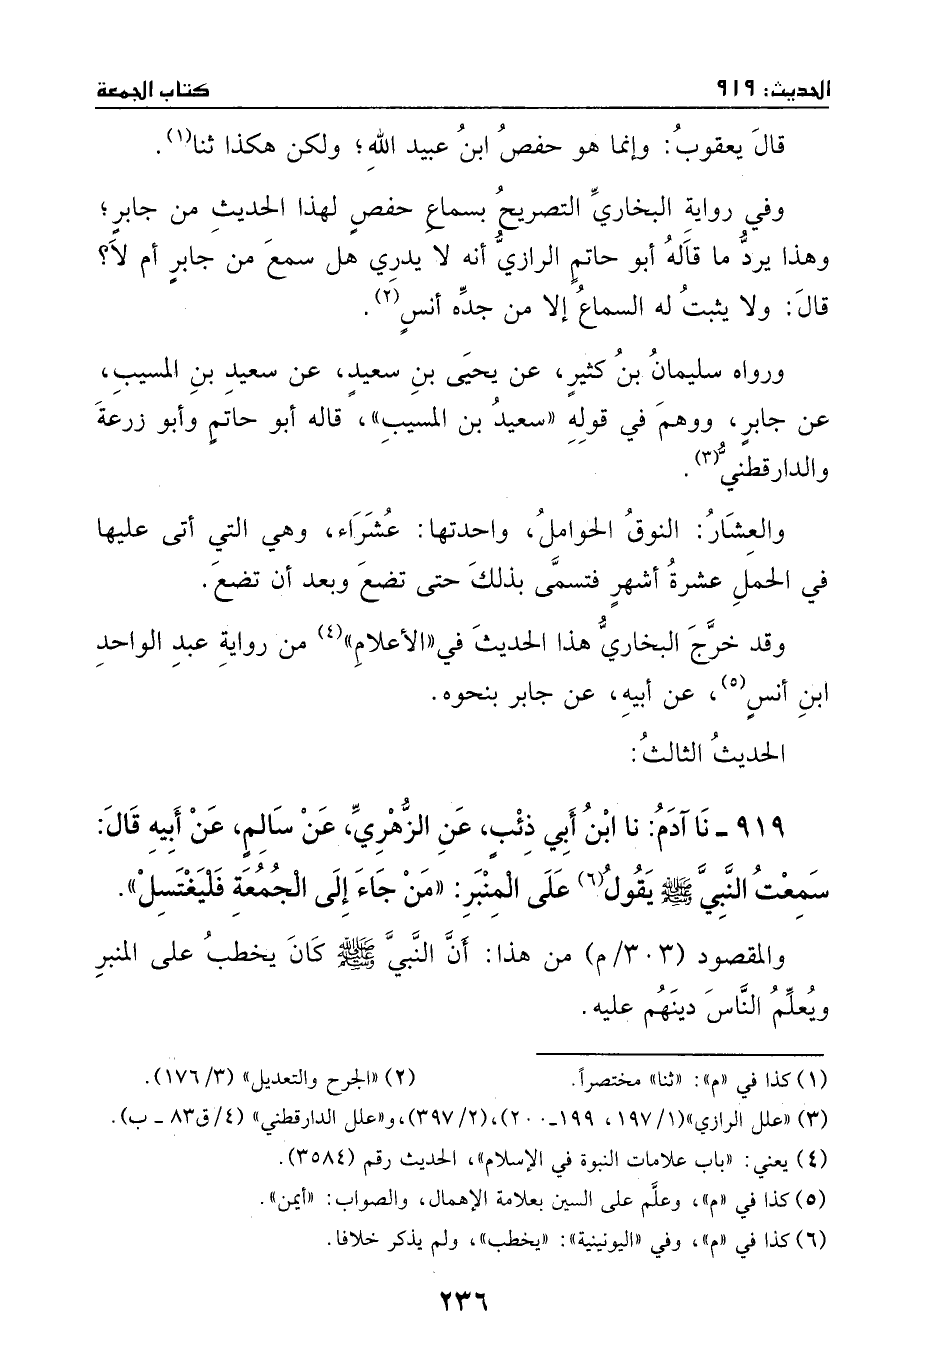 الحديث: ٩١٩ كتاب الجمعة
قالَ يعقوبُ: وإنما هو حفصُ ابنُ عبيد اللهِ؛ ولكن هكذا ثنا(١).
وفي روايةِ البخاريِّ التصريحُ بسماعِ حفصٍ لهذا الحديثِ من جابرٍ؛
وهذا يردُّ ما قالَهُ أبو حاتمٍ الرازيُّ أنه لا يدرِي هل سمعَ من جابرٍ أم لاَ؟
قالَ: ولا يثبتُ له السماعُ إلا من جدِّه أنسٍ(٢).
ورواه سليمانُ بنُ كثيرٍ، عن يحيَى بنِ سعيدٍ، عن سعيدِ بنِ المسيبِ،
عن جابرٍ، ووهمَ في قولِهِ «سعيدُ بن المسيبِ»، قاله أبو حاتمٍ وأبو زرعةَ
والدارقطنيُّ(٣).
والعِشَارُ: النوقُ الحواملُ، واحدتها: عُشَرَاء، وهي التي أتى عليها
في الحملِ عشرةُ أشهرٍ فتسمَّى بذلكَ حتى تضعَ وبعد أن تضعَ.
وقد خرَّجَ البخاريُّ هذا الحديثَ في«الأعلامِ»(٤) من روايةِ عبدِ الواحدِ
ابنِ أنسٍ(٥)، عن أبيهِ، عن جابر بنحوه.
الحديثُ الثالثُ:
٩١٩ ـ نَا آدَمُ: نا ابْنُ أَبي ذِئْبٍ، عَنِ الزُّهْرِيِّ، عَنْ سَالِمٍ، عَنْ أَبِيهِ قَالَ:
سَمِعْتُ النَّبِيَّ ﷺ يَقُولُ(٦) عَلَى الْمِنْبَرِ: «مَنْ جَاءَ إِلَى الْجُمُعَةِ فَلْيَغْتَسِلْ».
والمقصود (٣٠٣/م) من هذا: أَنَّ النَّبيَّ ﷺ كَانَ يخطبُ على المنبرِ
ويُعلِّمُ النَّاسَ دينَهُم عليه.
(١) كذا في «م»: «ثنا» مختصراً. (٢) «الجرح والتعديل» (٣/ ١٧٦).
(٣) «علل الرازي»(١/ ١٩٧، ١٩٩ـ٢٠٠)،(٢/ ٣٩٧)،و«علل الدارقطني» (٤/ ق٨٣ ـ ب).
(٤) يعني: «باب علامات النبوة في الإسلام»، الحديث رقم (٣٥٨٤).
(٥) كذا في «م»، وعلَّم على السين بعلامة الإهمال، والصواب: «أيمن».
(٦) كذا في «م»، وفي «اليونينية»: «يخطب»، ولم يذكر خلافا.
٢٣٦